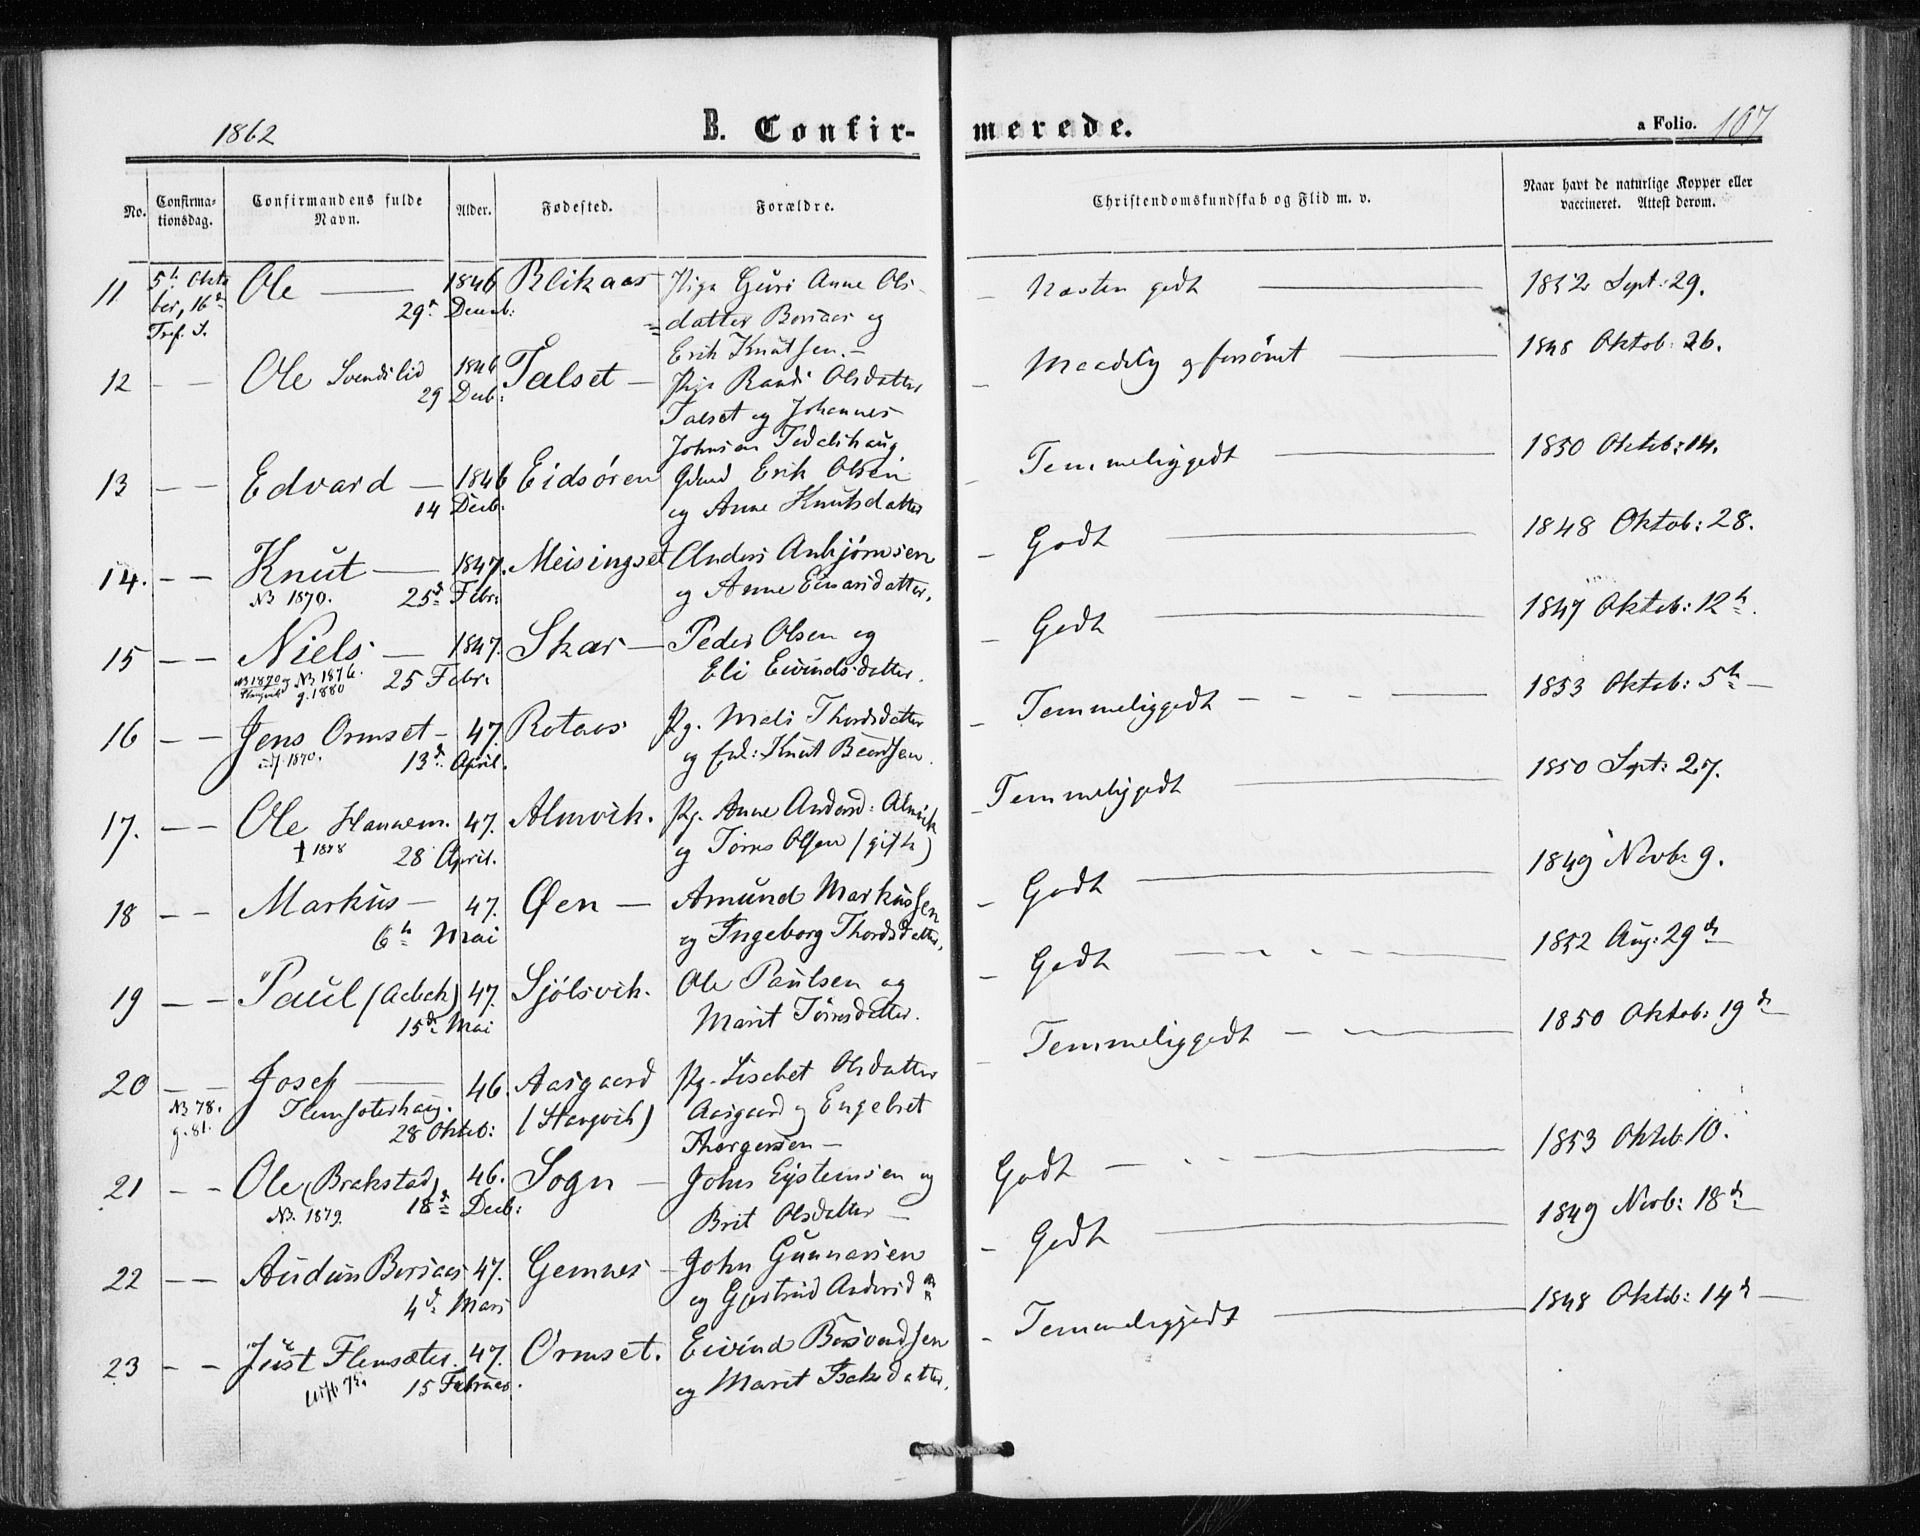 1862 B. Confir- merede. a Folio. 107
No. Confirma-tionsdag. Confirmandens fulde Navn. Alder. Fødested. Forældre. Christendomskundskab og Flid m. v. Naar havt de naturlige Kopper eller vaccineret. Attest derom.
11 5h Okto Ole — 1846 Blikaas Pige Guri Anne Ols- – Næsten godt — 1852 Sept: 29.
ber, 16d 29d Decemb: datter Boraas og
Tref. S. Erik Knutsen. –
12 – – Ole Svendslid 1846 Talset – Pige Randi Olsdatter – Maadelig og forsømt — 1848 Oktob: 26.
29 Decb: Talset og Johannes
Johnsen Tedalshaug
13 – – Edvard – 1846 Eidsøren Gdmd Erik Olsen – Temmeliggodt — 1850 Oktob: 14.
14 Decb. og Anne Knutsdatter
14. – – Knut — 1847. Meisingset Anders Anbjørnsen – Godt — 1848 Oktob: 28.
NB 1870. 25d Febr: og Anne Einarsdatter.
15 – – Niels – 1847. Skar – Peder Olsen og – Godt — 1847 Oktob: 12h.
NB 1870 og NB 1876. 25 Febr: Eli Eivindsdatter.
g. 1880
16 – – Jens Ormset – 47. Rotaas Pg. Mali Thordsdatter – Temmeliggodt – – – 1853 Oktob: 5h –
1870. 13d April. og Knut Baardsen.
17. – – Ole Hannem. 47. Almvik. Pg. Anne Andersd: Almvik – Temmeligodt — 1850 Sept: 27.
† 1878 28 April. og Tørres Olsen (gift)
18 – – Markus – 47. Øen – Amund Markussen – Godt — 1849 Novb: 9.
6h Mai og Ingeborg Thordsdatter.
19 – – Paul (Aebek) 47. Sjølsvik. Ole Paulsen og – Godt — 1852 Aug: 29d
15d Mai Marit Tørresdatter.
20 – – Josef — 46. Aasgaard Pg. Lisabet Olsdatter – Temmeliggodt — 1850 Oktob: 19d
NB 78. Flemsæterhaug. (Stangvik) Aasgaard og Engelset
g. 81. 28 Oktob: Thorgersen –
21 – – Ole (Brakstad) 46. Sogn – John Eystensen og Godt — 1853 Oktob. 10.
NB. 1879. 18d Decb: Brit Olsdatter –
22 – – Audun Boraas 47. Gemnes – John Gunnarsen – Godt — 1849 Novb: 18d
4d Mars og Gjertrud Andersd
23 – – Just Flemsæter. 47. Ormset. Eivind Baardsen – Temmeliggodt — 1848 Oktob: 14d –
75. 15 Februar. og Marit Isaksdatter.